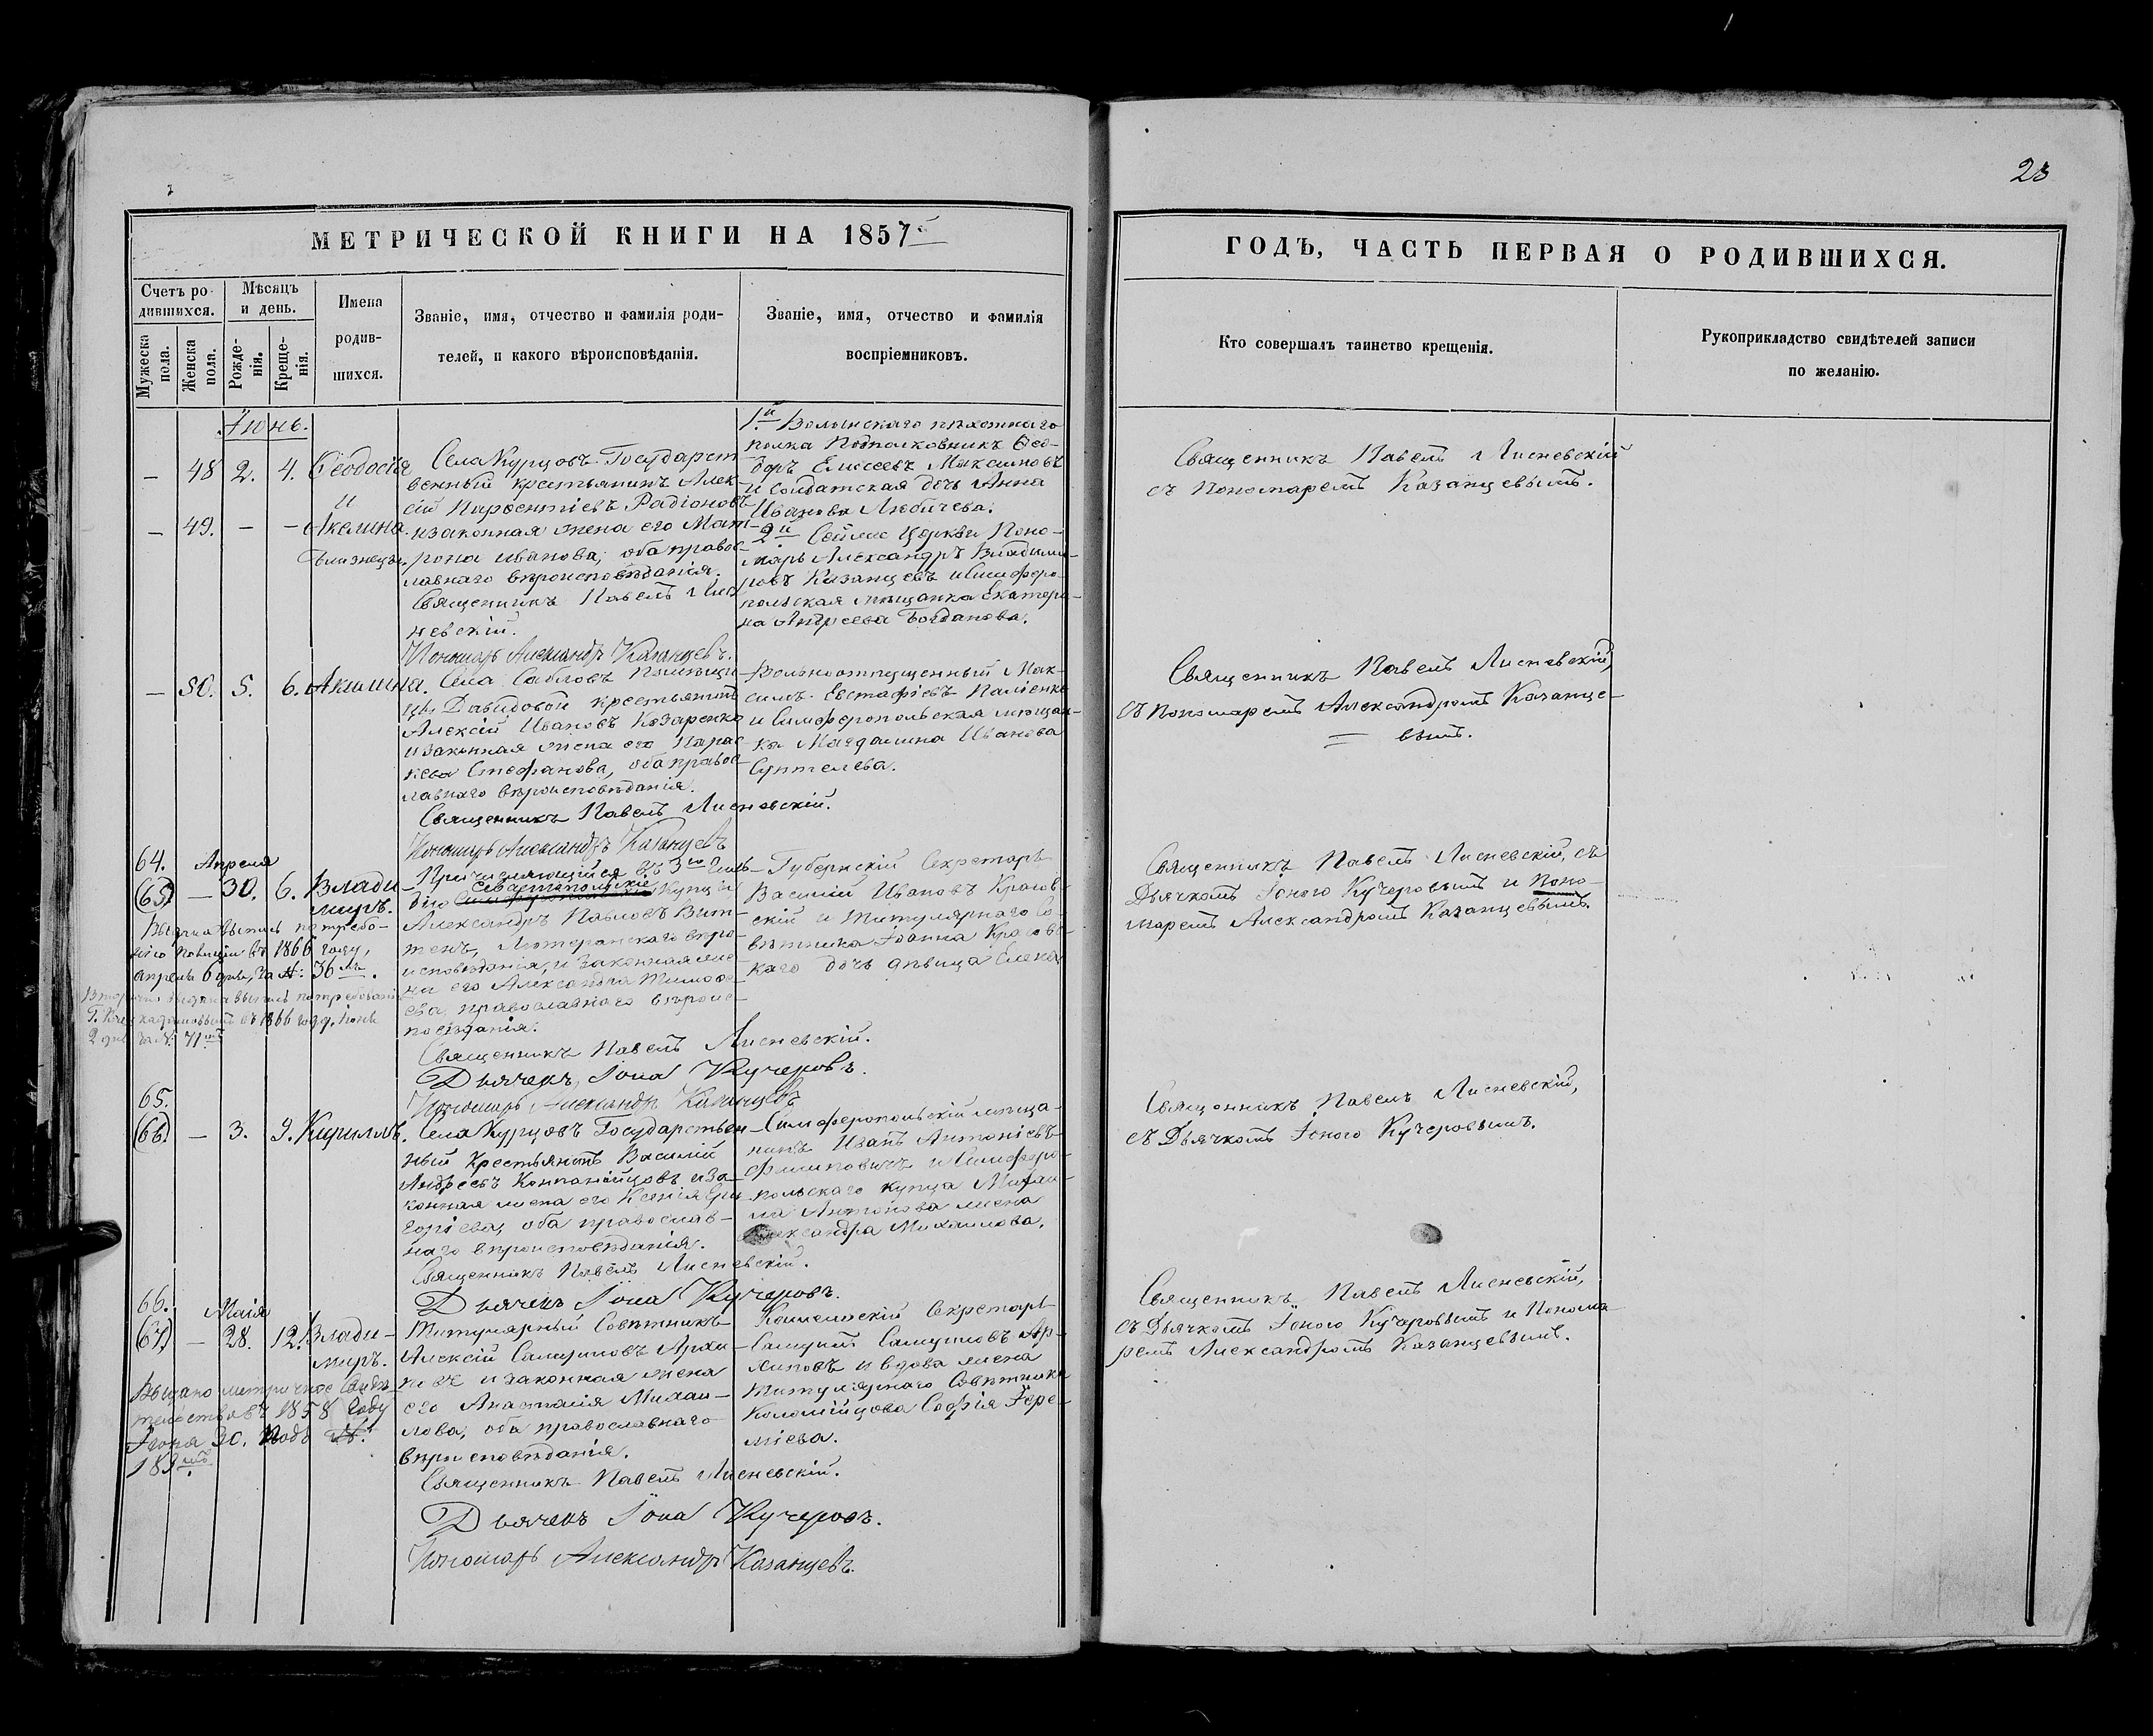 23
МЕТРИЧЕСКОЙ КНИГИ НА 1857й
ГОДЪ, ЧАСТЬ ПЕРВАЯ О РОДИВШИХСЯ.
Счетъ ро-
дившихся.
Мужеска
пола.
Женска
пола.
Мѣсяцъ
и день.
Рожде-
нія.
Креще-
нія.
Имена
родив-
шихся.
Званіе, имя, отчество и фамилія роди-
телей, и какого вѣроисповѣданія.
Званіе, имя, отчество и фамилія
воспріемниковъ.
Кто совершалъ таинство крещенія.
Рукоприкладство свидѣтелей записи
по желанію.
Іюнь.
— 48 2. 4. Ѳеодосія
и
— 49. — — Акилина
близнецы.
Села Курцовъ Государст
венный крестьянинъ Алек
сій Радіоновъ
и законная жена его Мат
рона Иванова, оба правос
лавнаго вѣроисповѣданія.
Священникъ Павелъ Лис
невскій.
Пономарь Александръ Казанцевъ.
1й Волынскаго пѣхотнаго
полка Подполковникъ Ѳео
доръ Елисеевъ Максимовъ
и солдатская дочь Анна
Иванова Любичева.
2й Сей же Церкви Поно-
марь Александръ Владими-
ровъ Казанцевъ и Симферо-
польская мѣщанка Екатери-
на Андреева Богданова.
Священникъ Павелъ Лисневскій
съ Пономаремъ Казанцевымъ.
— 50. 5. 6. Акилина.
Села Сабловъ Помѣщи
цы Давыдовой крестьянинъ
Алексій Ивановъ Козаренко
и законная жена его Парас
кева Стефанова, оба правос
лавнаго вѣроисповѣданія.
Священникъ Павелъ Лисневскій.
Пономарь Александръ Казанцевъ
Вольноотпущенный Мак-
симъ Евстафіевъ Паліенко
и Симферопольская мѣщан-
ка Магдалина Иванова
Суптелева.
Священникъ Павелъ Лисневскій
съ Пономаремъ Александромъ Казанце-
= вымъ.
64.
(65) —
Апреля
30. 6. Влади-
миръ.
Выдана выпись по требо-
Полиціи въ 1866 году,
апреля 6 дня, за №: 36мъ.
выдана выпись по требованію
въ 1866 году, іюня
2 дня за №: 71мъ
Причисляющійся въ 3ю Гиль-
дію Севастопольскіе Купцы
Александръ Павловъ Вит-
тенъ, Лютеранскаго вѣро-
исповѣданія, и законная же
на его Александра Тимофе
ева, православнаго вѣроис-
повѣданія.
Священникъ Павелъ Лисневскій.
Дьячекъ Іона Кучеровъ.
Пономарь Александръ Казанцевъ
Губернскій Секретарь
Василій Ивановъ Красов-
скій и Титулярнаго Со-
вѣтника Іоанна Красовс
каго дочь дѣвица Елена
Священникъ Павелъ Лисневскій, съ
Дьячкомъ Іоною Кучеровымъ и Поно-
маремъ Александромъ Казанцевымъ.
65.
(66.) — 3. 9. Кириллъ.
Села Курцовъ Государствен
ный Крестьянинъ Василій
Андреевъ Компанійцовъ и за-
конная жена его Ксенія Гри
горіева, оба православ-
наго вѣроисповѣданія.
Священникъ Павелъ Лисневскій.
Дьячекъ Іона Кучеровъ.
Симферопольскій мѣща-
нинъ Иванъ Антоніевъ
Филиповичъ и Симферо-
польскаго купца Михаи-
ла Антонова жена
Александра Михаилова.
Священникъ Павелъ Лисневскій,
съ Дьячкомъ Іоною Кучеровымъ.
66.
(67) —
Маія
28. 12. Влади-
миръ.
Выдано метричное Свидѣ
тельство въ 1858 году
Іюня 30. подъ №:
183мъ.
Титулярный Совѣтникъ
Алексій Самуиловъ Архи
повъ и законная жена
его Анастасія Михаи-
лова, оба православнаго
вѣроисповѣданія.
Священникъ Павелъ Лисневскій.
Дьячекъ Іона Кучеровъ.
Пономарь Александръ Казанцевъ.
Коллежскій Секретарь
Самуилъ Самуиловъ Ар-
хиповъ и вдова жена
Титулярнаго Совѣтника
Коломійцова Софія Іере-
міева.
Священникъ Павелъ Лисневскій,
съ Дьячкомъ Іоною Кучеровымъ и Понома
ремъ Александромъ Казанцевымъ.